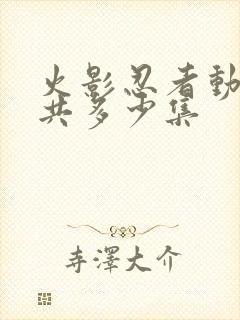 火影忍者動
共多少集
寺澤大介